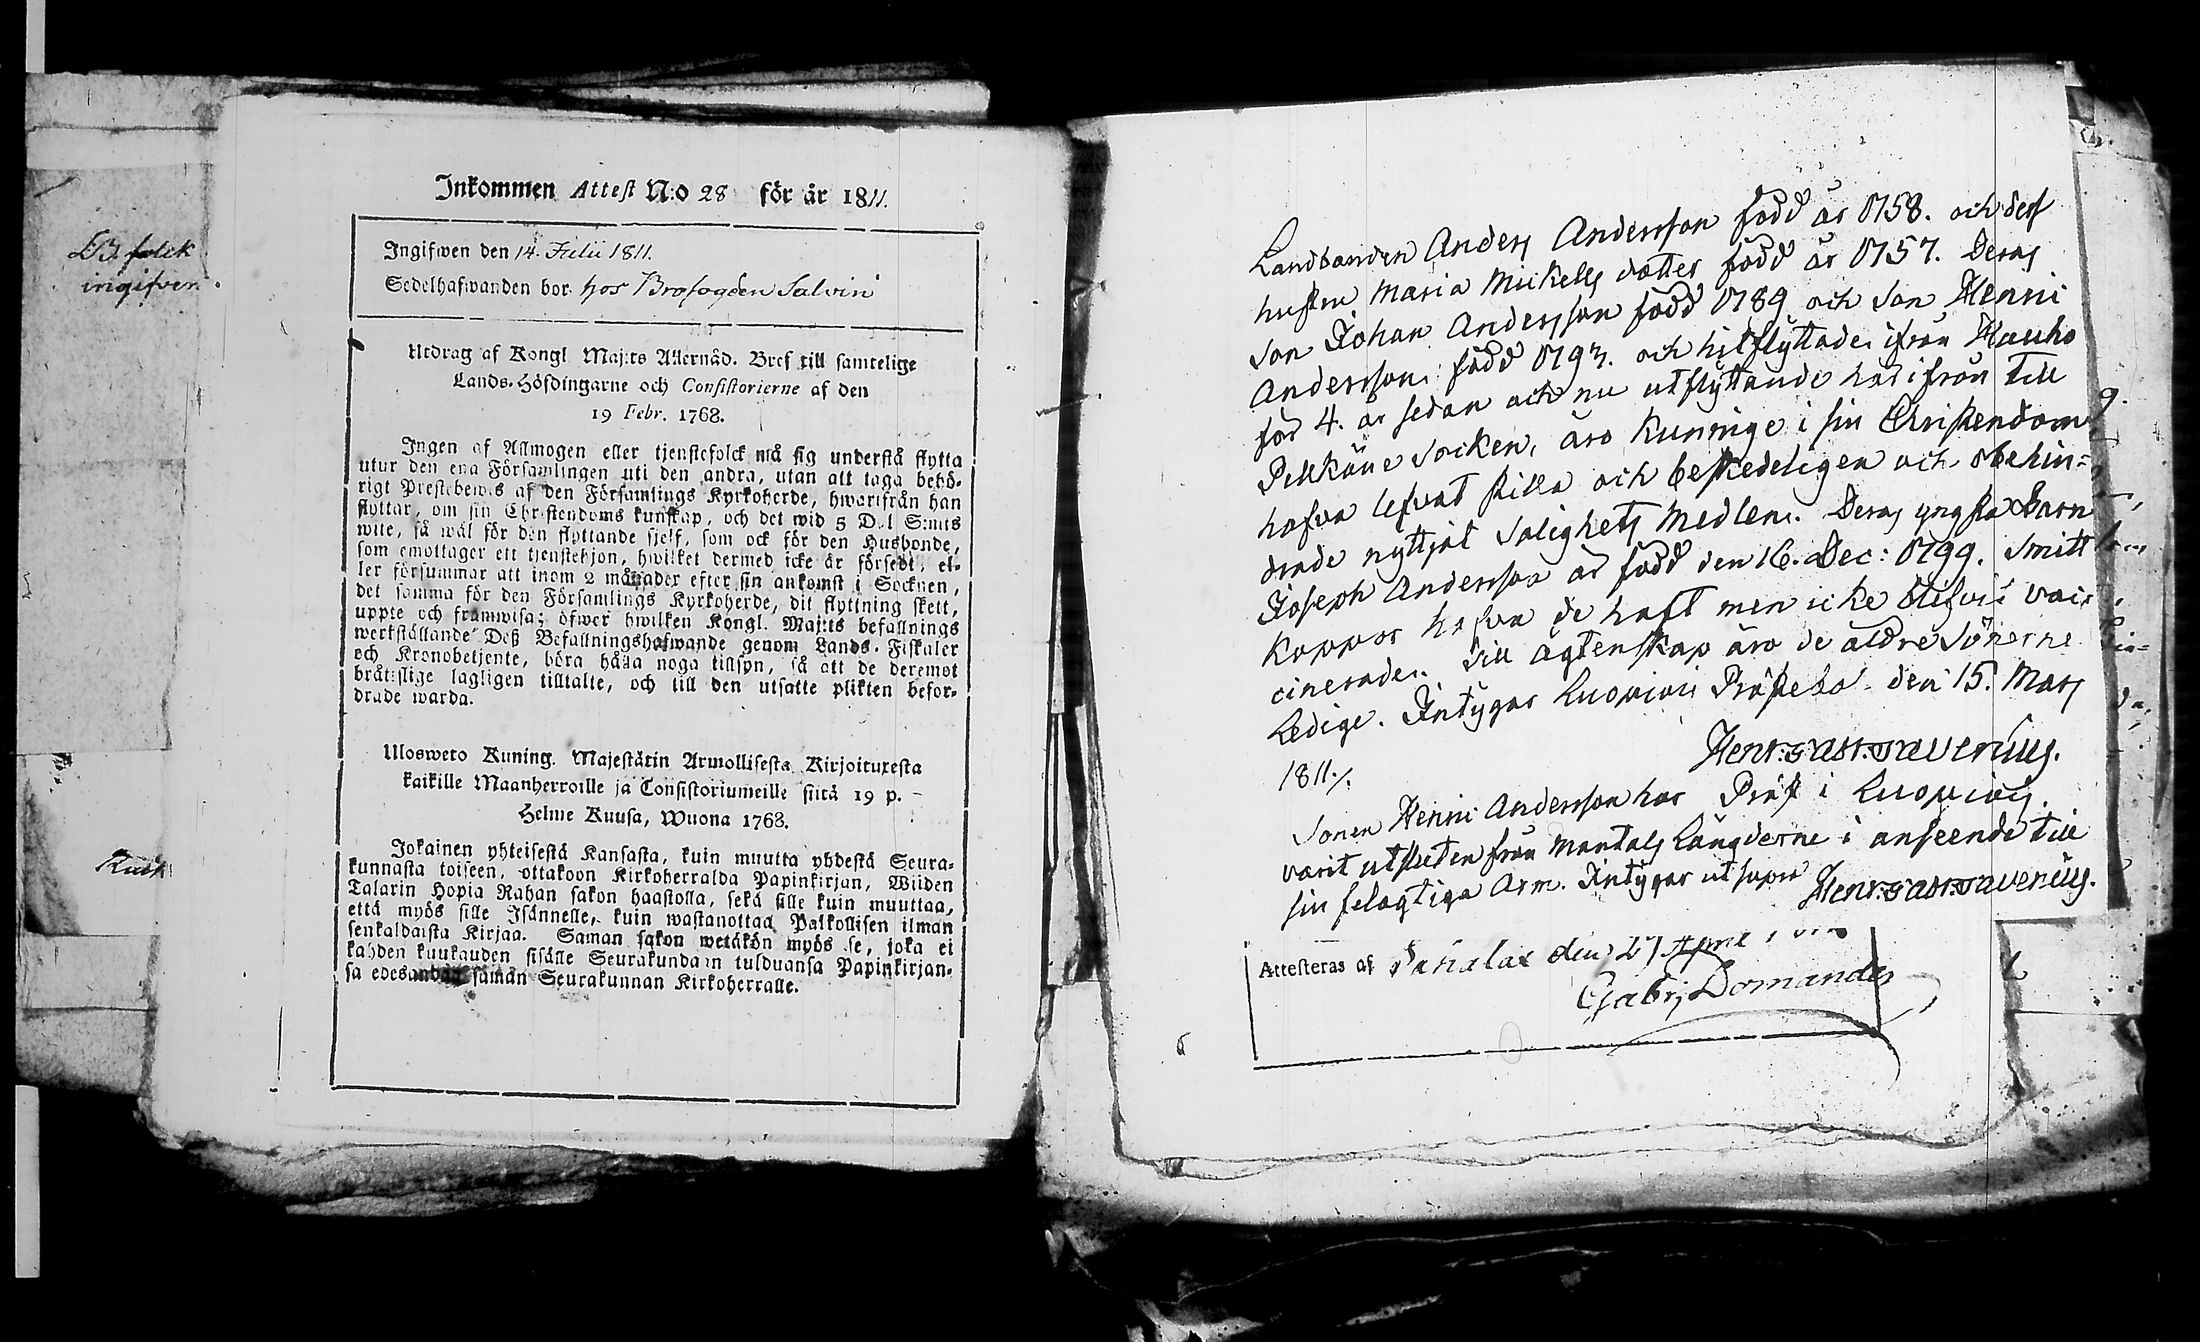 Inkommen Attest N:o 28 för år 1811.
Ingifwen den 14. Julii 1811.
Sedelhafwanden bor hos Brofogden Salvin
Utdrag af Kongl Maj:ts Allernåd. Bref till samtelige
Lands-Höfdingarne och Consistorierne af den
19 Febr. 1768.
Ingen af Allmogen eller tjenstefolck må sig understå flytta
utur den ena Församlingen uti den andra, utan att taga behö-
rigt Prestebewis af den Församlings Kyrkoherde, hwarifrån han
flyttar, om sin Christendoms kunskap, och det wid 5 Dal S:mts
wite, så wäl för den flyttande sjelf, som ock för den Husbonde,
som emottager ett tjenstehjon, hwilket dermed icke är försedt, el-
ler försummar att inom 2 månader efter sin ankomst i Socknen,
det samma för den Församlings Kyrkoherde, dit flyttning skett,
uppte och framwisa; öfwer hwilken Kongl. Maj:ts befallnings
werkställande Deß Befallningshafwande genom Lands-Fiskaler
och Kronobetjente, böra hålla noga tillsyn, så att de deremot
bråtslige lagligen tilltalte, och till den utsatte plikten befor-
drade warda.
Ulosweto Kuning. Majestätin Armollisesta Kirjoituxesta
kaikille Maanherroille ja Consistoriumeille siitä 19 p.
Helme Kuusa, Wuona 1768.
Jokainen yhteisestä Kansasta, kuin muutta yhdestä Seura-
kunnasta toiseen, ottakoon Kirkoherralda Papinkirjan, Wiiden
Talarin Hopia Rahan sakon haastolla, sekä sille kuin muuttaa,
että myös sille Isännelle, kuin wastanottaa Palkollisen ilman
senkaldaista Kirjaa. Saman sakon wetäkön myös se, joka ei
kahden kuukauden sisälle Seurakundaan tulduansa Papinkirjan-
sa edesanda saman Seurakunnan Kirkoherralle.
folck
ingifven
Landbonden Anders Andersson född år 1758. och dess
hustru Maria Mickels dotter född år 1757. Deras
son Johan Andersson född 1789 och son Henric
Andersson född 1793. och hitflyttade ifrån Hauho
för 4. år sedan och nu utflyttande härifrån till
Pelkäne Socken, äro kunnige i sin Christendom
hafva lefvat stilla och beskedeligen och obehin-
drade nyttjat Salighets Medlen. Deras yngsta Barn
Joseph Andersson är född den 16. Dec: 1799. Smitt
koppor hafva de haft men icke blifvit vac-
cinerade. Till ägtenskap äro de äldre Sönerne
Ledige. Intygar Luopiois Prästebol den 15. Mars
1811./.
Henr: Gabr: Taverius.
Präst i Luopiois.
Sonen Henric Andersson har
varit utsluten från Mantals Längderne i anseende till
sin felagtiga Arm. Intygar ut supra Henr: Gabr: Taverius.
Attesteras af Sahalax den 27 April
Gabr: Domander